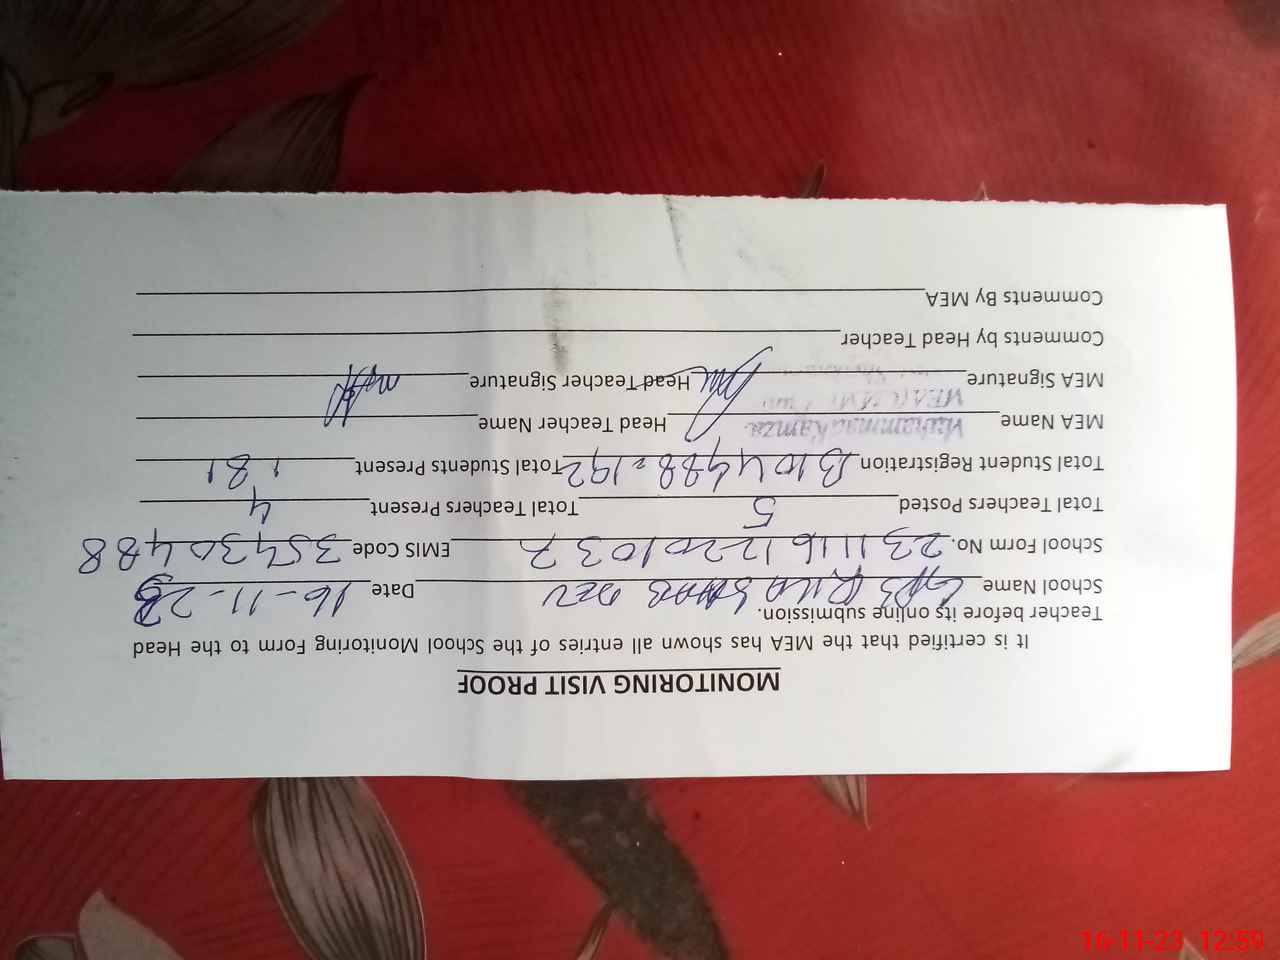 MONITORING VISIT PROOF
It is certified that the MEA has shown all entries of the School Monitoring Form to the Head
Teacher before its online submission.
School Name GPS Date 16-11-23
School Form No. 23111612201037 EMIS Code 35430488
Total Teachers Posted 5 Total Teachers Present 4
Total Student Registration B104488=192 Total Students Present 181
MEA Name Muhammad Hamza Head Teacher Name
MEA Signature Head Teacher Signature
Comments by Head Teacher
Comments By MEA
16-11-23 12:59